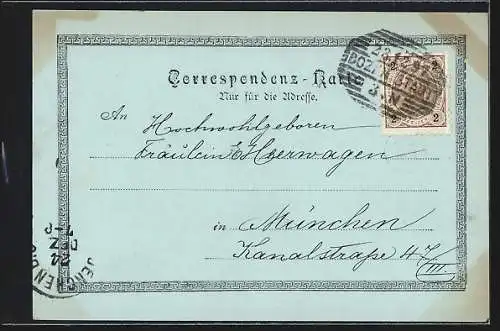 Correspondenz-Karte
Nur für die Adresse.
An Hochwohlgeboren
Fräulein E. Herwagen
in München
Kanalstraße 47/III.
2 2
24
DEZ
7-8